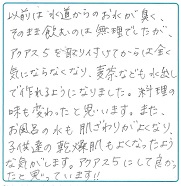 以前は水道からのお水が臭く、
そのまま飲むのは無理でしたが、
アクアス5を取り付けてからは全く
気にならなくなり、麦茶なども水出し
で作れるようになりました。料理の
味も変わったと思います。また、
お風呂の水も肌ざわりがよくなり、
子供達の乾燥肌もよくなったよう
な気がします。アクアス5にして良かっ
たと思っています!!